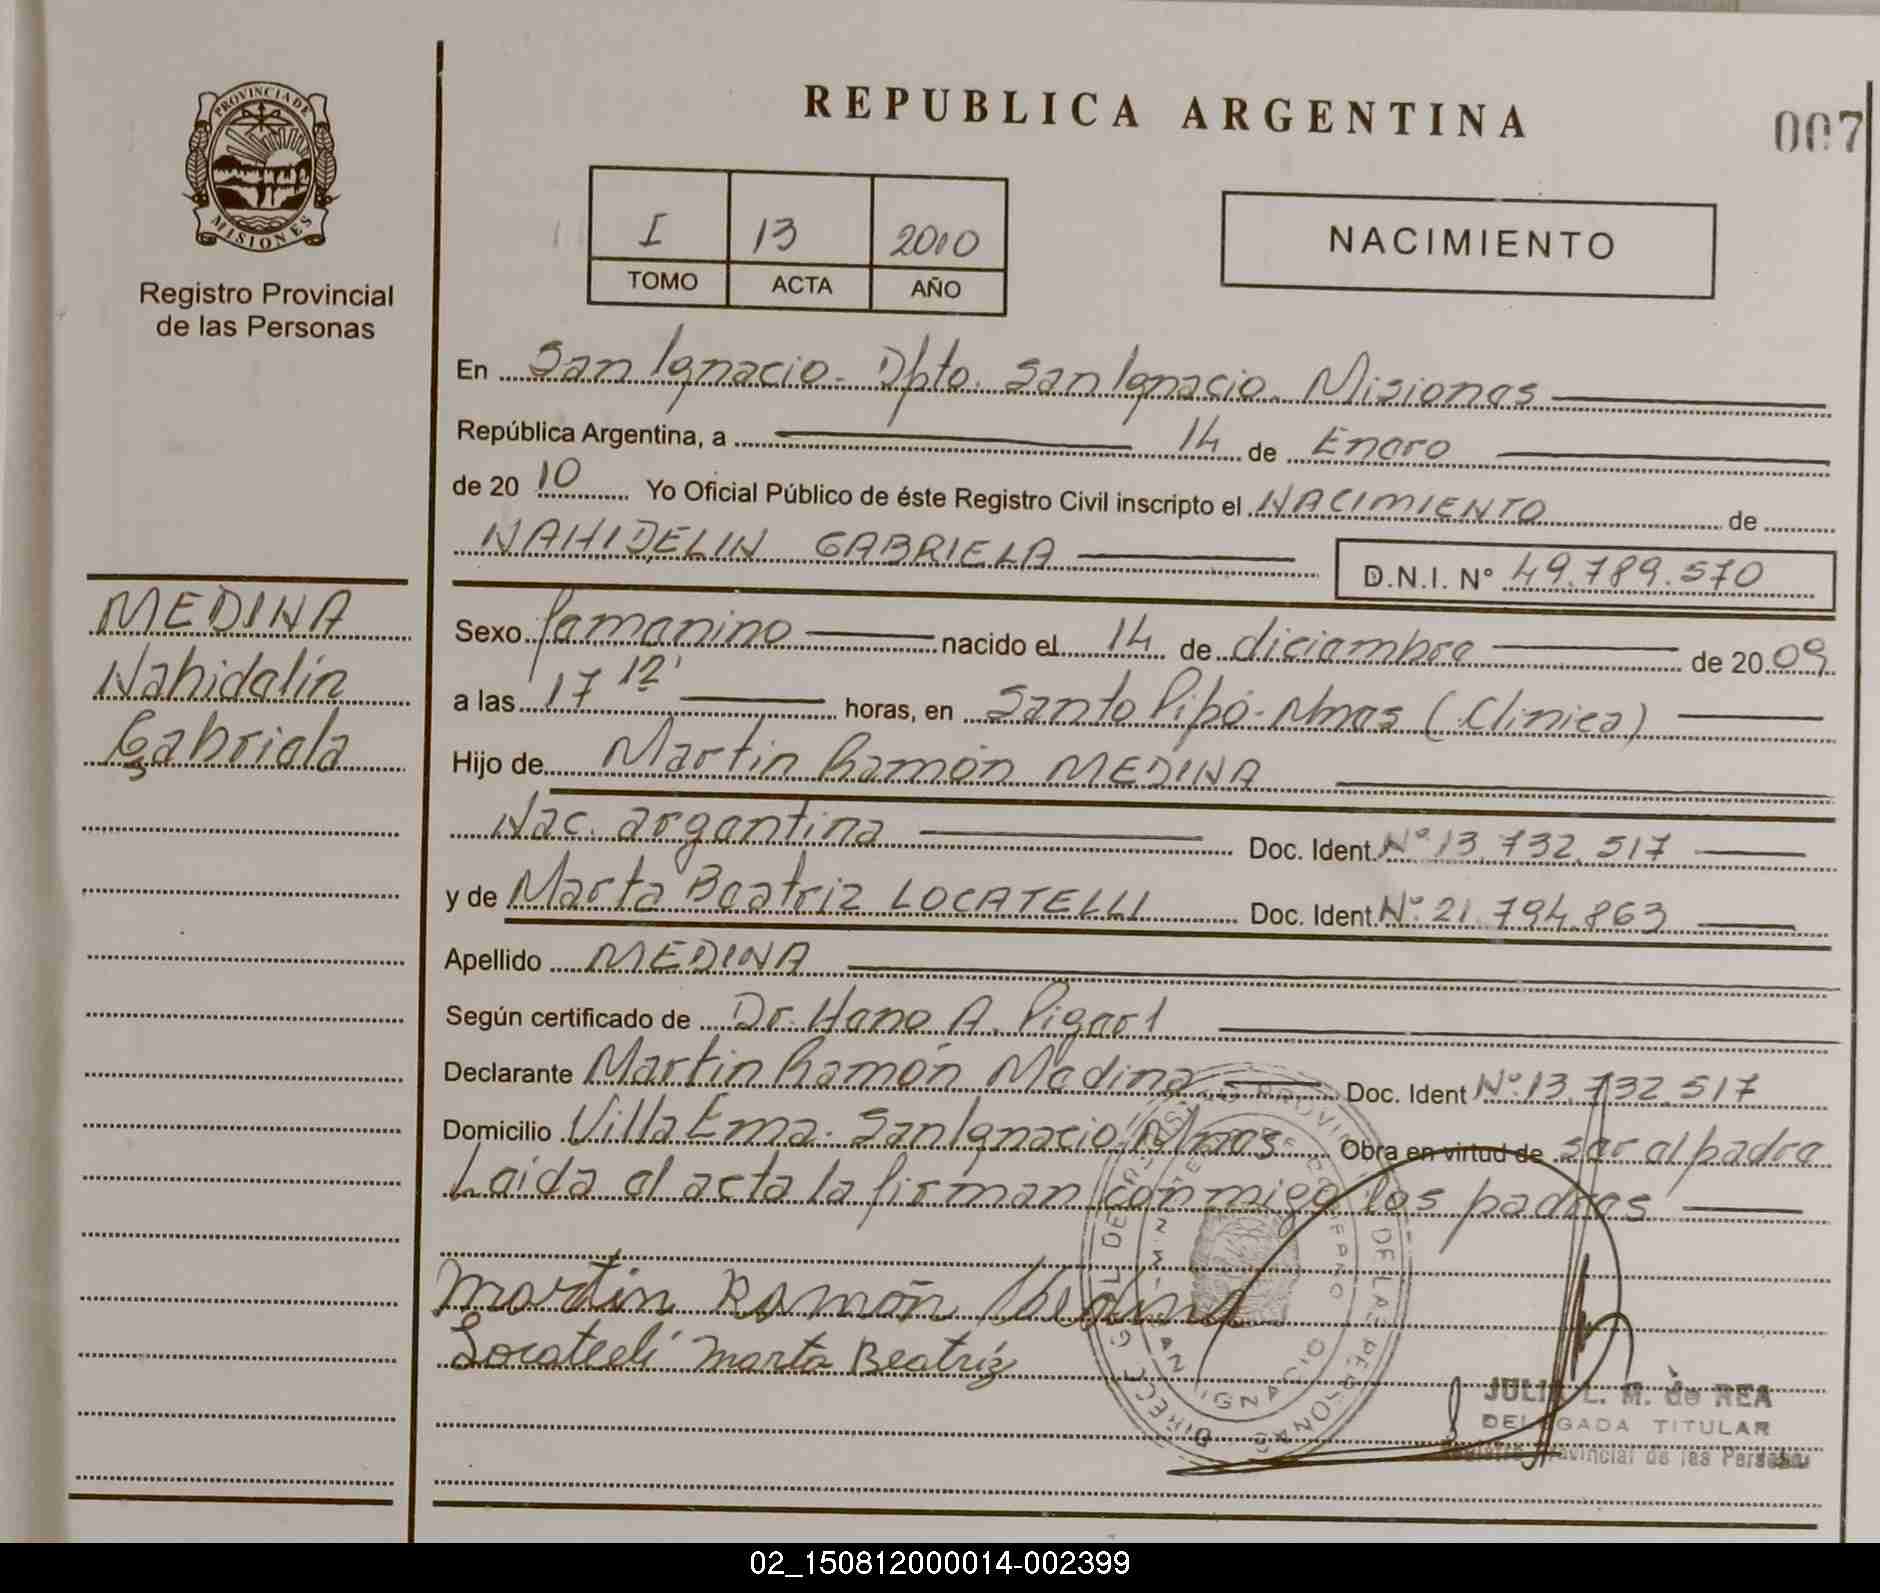 REPUBLICA ARGENTINA
007
PROVINCIA DE
MISIONES
Registro Provincial
de las Personas
I 13 2010
TOMO ACTA AÑO
NACIMIENTO
En San Ignacio. Dpto. San Ignacio. Misiones
República Argentina, a 14 de Enero
de 20 10 Yo Oficial Público de éste Registro Civil inscripto el NACIMIENTO de
NAHIDELIN GABRIELA D.N.I. N° 49.789.570
MEDINA
Nahidelín
Gabriela
Sexo femenino nacido el 14 de diciembre de 20 09
a las 17 12' horas, en Santo Pipó-Mnes (Clinica)
Hijo de Martin Ramón MEDINA
Nac. argentina Doc. Ident. N° 13.732.517
y de Marta Beatriz LOCATELLI Doc. Ident. N° 21.794.863
Apellido MEDINA
Según certificado de Dr. A.
Declarante Martin Ramón Medina Doc. Ident N° 13.732.517
Domicilio Villa Ema. San Ignacio. Mnes Obra en virtud de ser el padre
Leida el acta la firman conmigo los padres
Martin Ramón Medina
Locatelli Marta Beatriz
JULIA L. M. de REA
DELEGADA TITULAR
Registro Provincial de las Personas
02_150812000014-002399